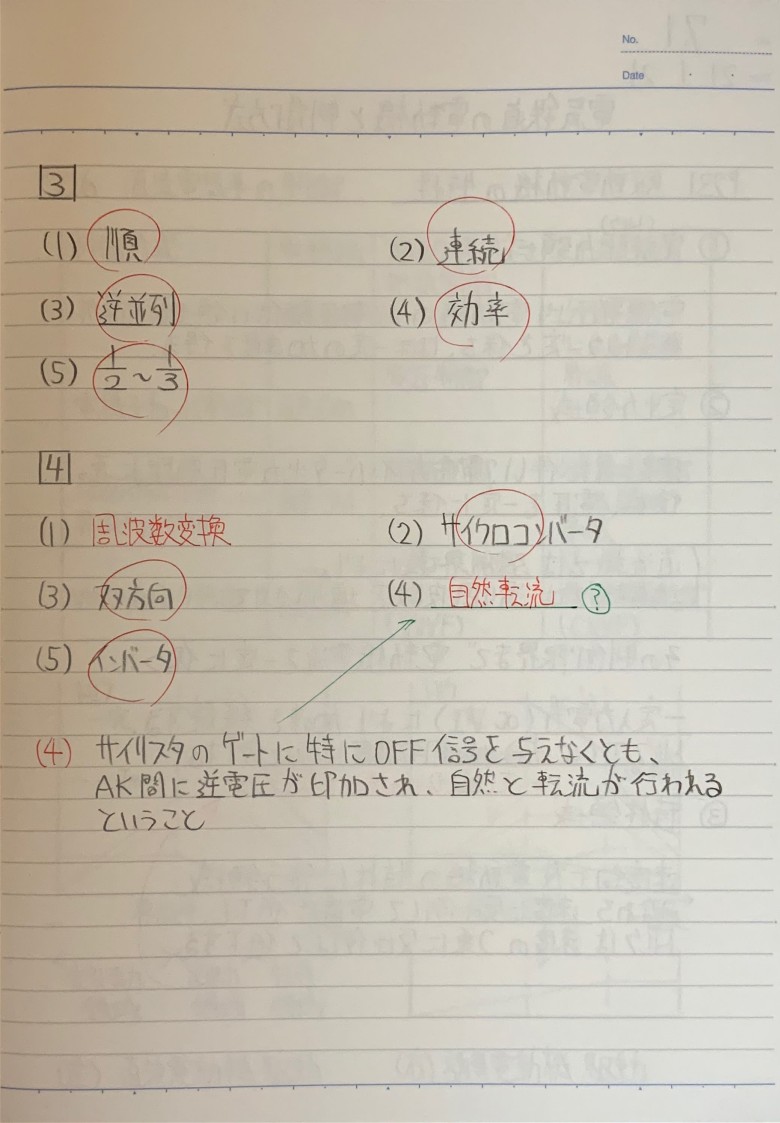 No.
Date
3
(1) 順 (2) 連続
(3) 逆並列 (4) 効率
(5) 1/2～1/3
4
(1) 周波数変換 (2) サイクロコンバータ
(3) 双方向 (4) 自然転流 ?
(5) インバータ
(4) サイリスタのゲートに特にOFF信号を与えなくとも、
AK間に逆電圧が印加され、自然と転流が行われる
ということ